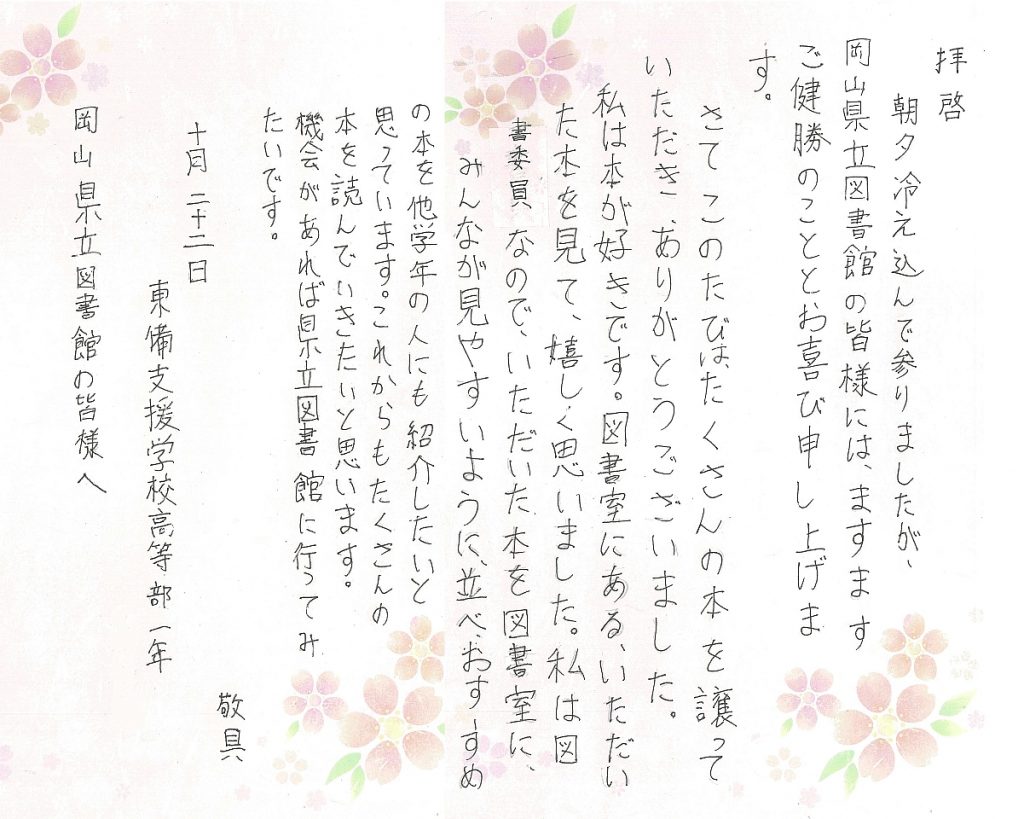 拝啓
朝夕冷え込んで参りましたが、
岡山県立図書館の皆様には、ますます
ご健勝のこととお喜び申し上げま
す。
さてこのたびは、たくさんの本を譲って
いただき、ありがとうございました。
私は本が好きです。図書室にある、いただい
た本を見て、嬉しく思いました。私は図
書委員なので、いただいた本を図書室に、
みんなが見やすいように、並べ、おすすめ
の本を他学年の人にも紹介したいと
思っています。これからもたくさんの
本を読んでいきたいと思います。
機会があれば県立図書館に行ってみ
たいです。
敬具
十月二十二日
東備支援学校高等部一年
岡山県立図書館の皆様へ